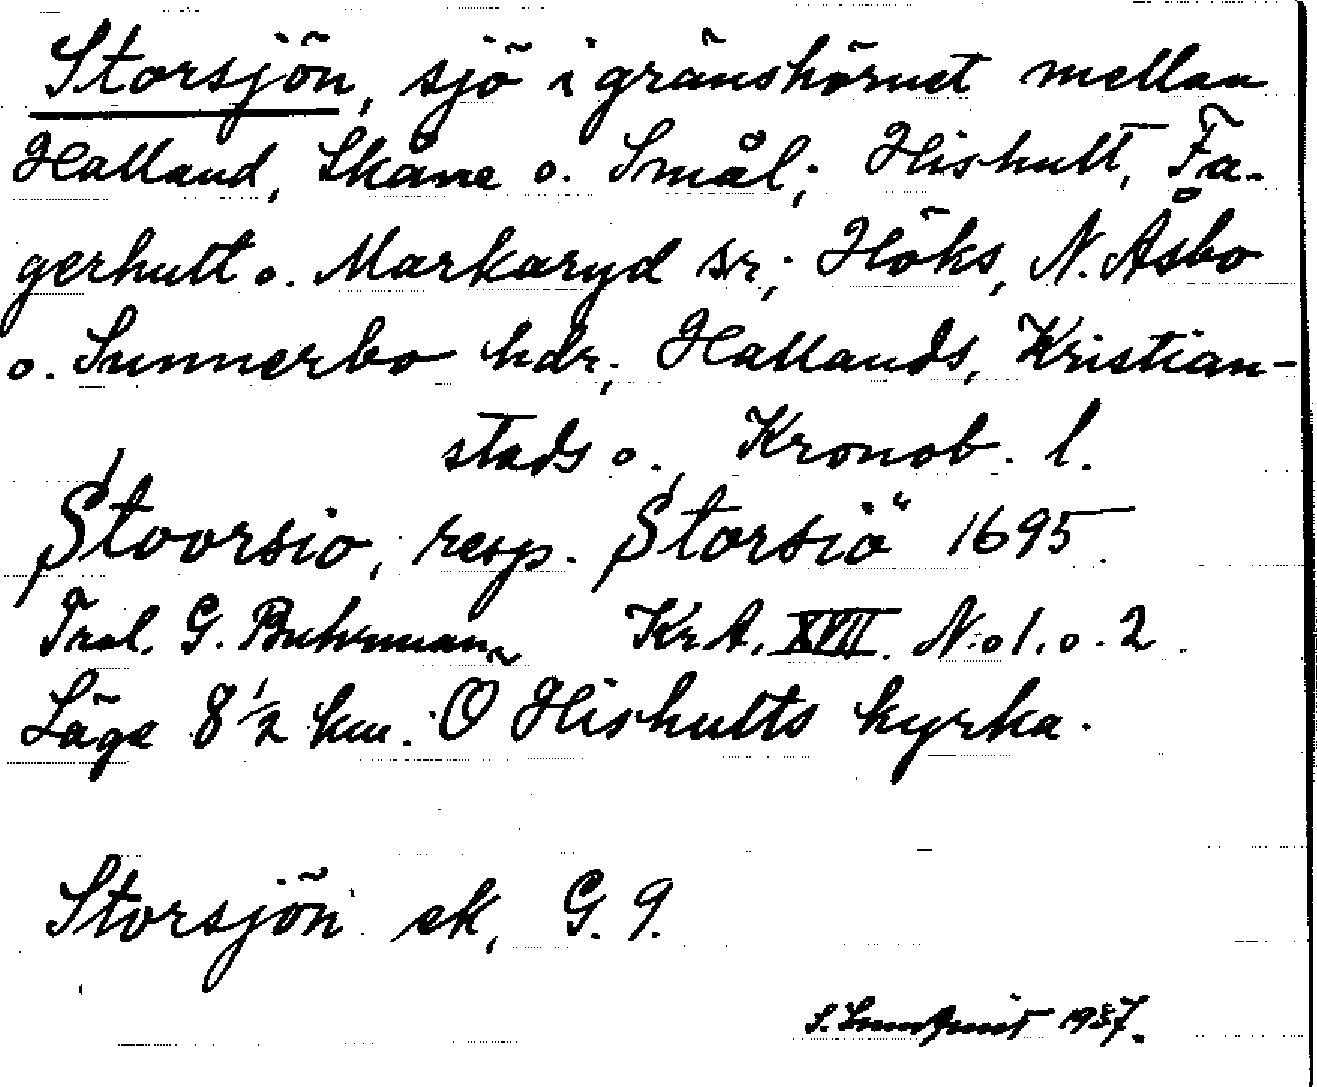 Storsjön, sjö i gränshörnet mellan
Halland, Skåne o. Smål; Hishult, Fa-
gerhult o. Markaryd snr; Höks, N. Åsbo
o. Sunnerbo hdr; Hallands, Kristian-
stads o. Kronob. l.
Stoorsio, resp. Storsiö 1695
G. Buhrman KrA. XVII. No 1. o. 2.
Läge 8 1/2 km. O Hishults kyrka.
Storsjön ek, G. 9.
S. Lundquist 1937.